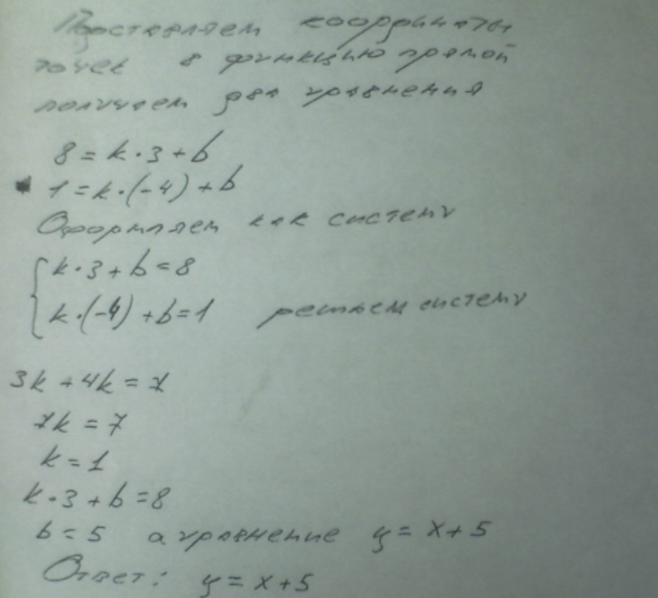 Подставляем координаты
точек в функцию прямой
получаем два уравнения
8 = k · 3 + b
1 = k · (-4) + b
Оформляем как систему
{ k · 3 + b = 8
k · (-4) + b = 1 решаем систему
3k + 4k = 7
7k = 7
k = 1
k · 3 + b = 8
b = 5 а уравнение y = x + 5
Ответ: y = x + 5